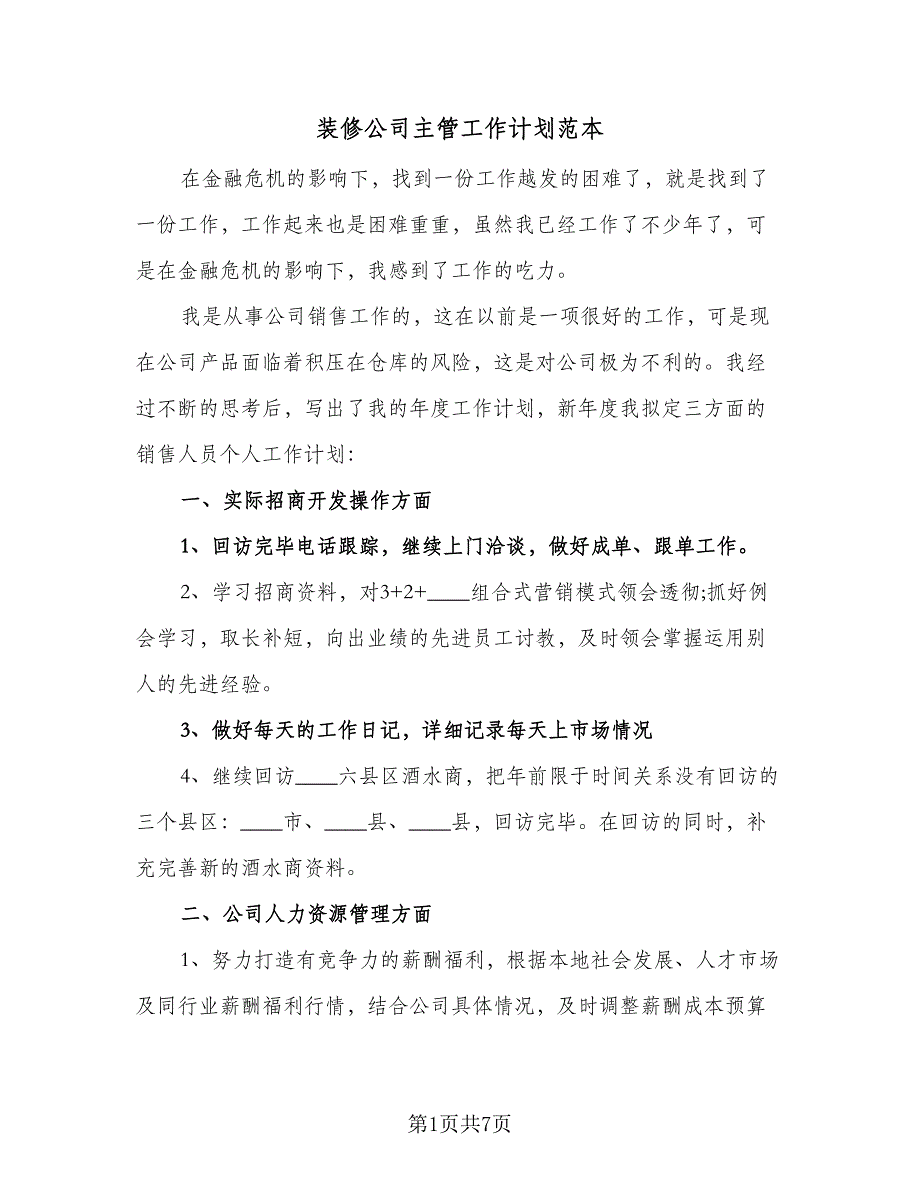 装修公司主管工作计划范本
在金融危机的影响下，找到一份工作越发的困难了，就是找到了
一份工作，工作起来也是困难重重，虽然我已经工作了不少年了，可
是在金融危机的影响下，我感到了工作的吃力。
我是从事公司销售工作的，这在以前是一项很好的工作，可是现
在公司产品面临着积压在仓库的风险，这是对公司极为不利的。我经
过不断的思考后，写出了我的年度工作计划，新年度我拟定三方面的
销售人员个人工作计划：
一、实际招商开发操作方面
1、回访完毕电话跟踪，继续上门洽谈，做好成单、跟单工作。
2、学习招商资料，对3+2+____组合式营销模式领会透彻;抓好例
会学习，取长补短，向出业绩的先进员工讨教，及时领会掌握运用别
人的先进经验。
3、做好每天的工作日记，详细记录每天上市场情况
4、继续回访____六县区酒水商，把年前限于时间关系没有回访的
三个县区：____市、____县、____县，回访完毕。在回访的同时，补
充完善新的酒水商资料。
二、公司人力资源管理方面
1、努力打造有竞争力的薪酬福利，根据本地社会发展、人才市场
及同行业薪酬福利行情，结合公司具体情况，及时调整薪酬成本预算
第1页共7页